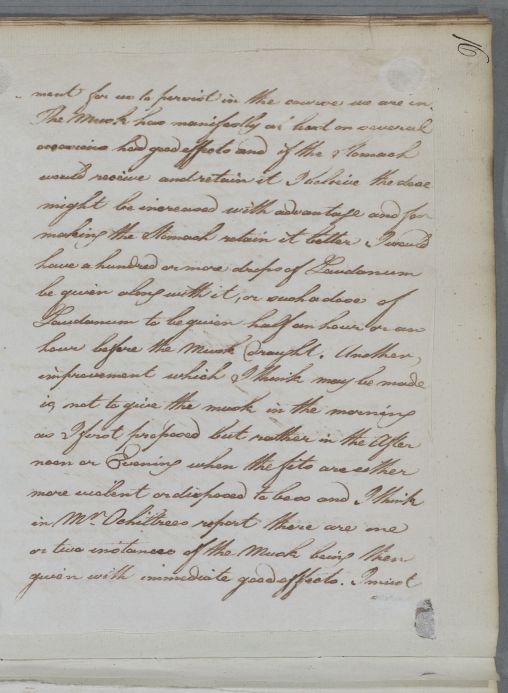 16
ment for us to persist in the course we are in.
The Musk has manifestly at least on several
occasions had good effects and if the stomach
would receive and retain it I believe the dose
might be increased with advantage and for
making the Stomach retain it better I would
have a hundred or more drops of Laudanum
be given along with it, or such a dose of
Laudanum to be given half an hour or an
hour before the Musk Draught. Another
improvement which I think may be made
is, not to give the musk in the morning
as I first proposed but rather in the After
noon or Evening when the fits are either
more violent or disposed to be so and I think
in Mr. Ochiltrees report there are one
or two instances of the Musk being then
given with immediate good effects. I must